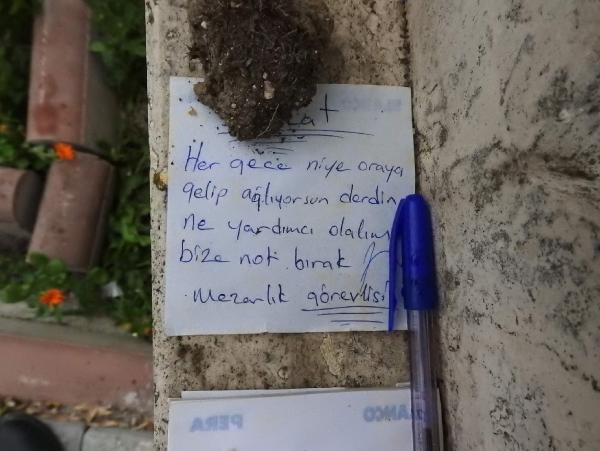 Her gece niye oraya
gelip ağlıyorsun derdin
ne yardımcı olalım
bize not bırak
mezarlık görevlisi
PERA
BLANCO